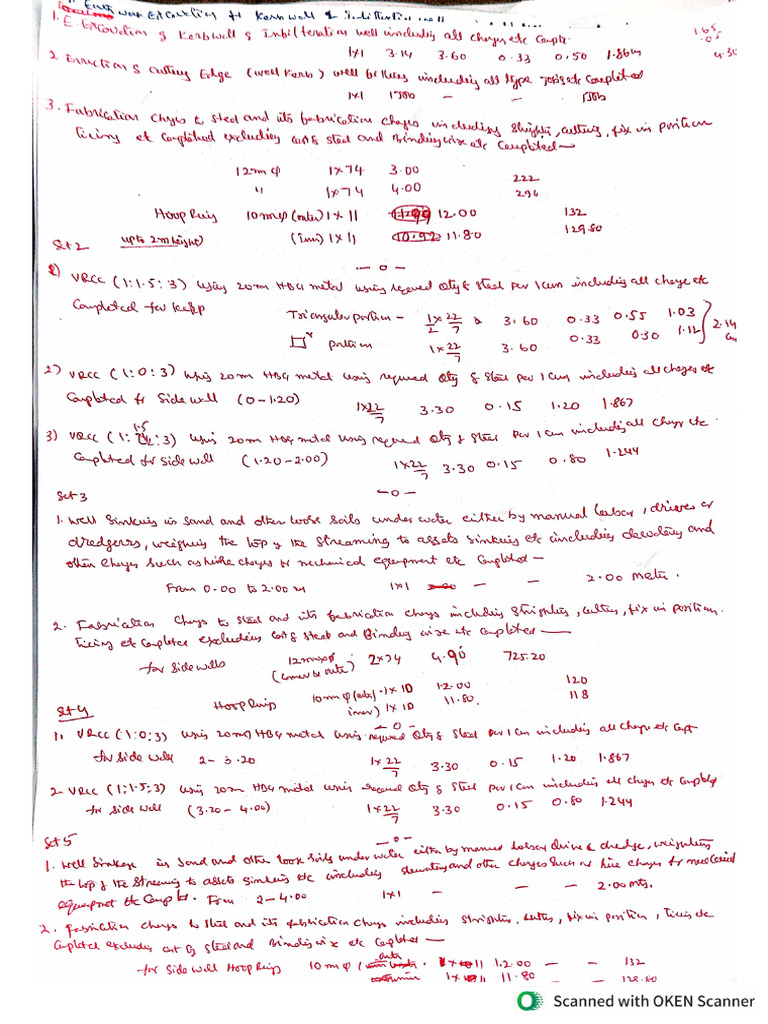 1. E. Excavation of Kerb well & Infiltration well including all charges etc Complt.
1x1 3.14 3.60 0.33 0.50 1.86
1.65
.05
4.30
2. Erruction & cutting Edge (well Kerb) well including all type Jobs etc Completed
1x1 1Job — — 1Job
3. Fabrication Charges to steel and its fabrication charges including Straightn, cutting, fix in position
Tieing et Completed excluding cost of steel and Binding wire etc Completed —
12m φ 1x74 3.00 222
" 1x74 4.00 296
Hoop Ring 10mφ (outer) 1x11 12.00 132
Set 2 upto 2m height) (inner) 1x11 11.80 129.80
— o —
1) VRCC (1:1.5:3) using 20mm HBG metal using required Qty of Steel per 1cum including all charge etc
Completed for Kerb
Triangular portion - 1/2 x 22/7 x 3.60 0.33 0.55 1.03
portion 1x22/7 3.60 0.33 0.30 1.12 2.14
2) VRCC (1:0:3) using 20mm HBG metal using required Qty of Steel per 1cum including all charges etc
Completed for Side wall (0-1.20) 1x22/7 3.30 0.15 1.20 1.867
3) VRCC (1:1.5:3) using 20mm HBG metal using required Qty of Steel per 1cum including all charge etc.
Completed for Side wall (1.20-2.00) 1x22/7 3.30 0.15 0.80 1.244
Set 3 — o —
1. Well Sinking in Sand and other loose Soils under water either by manual labour, drivers or
dredgers, weighing the top of the streaming to assets sinking etc including dewatering and
other charges such as hire charges for mechanical equipment etc Completed —
From 0.00 to 2.00 m 1x1 — — 2.00 meter.
2. Fabrication Charges to Steel and its fabrication charges including Straighten, cutting, fix in position.
Tieing et Completed excluding cost of steel and Binding wire etc completed —
for Side walls 12mmφ 2x74 4.90 725.20
(inner & outer)
Hoop Rings 10mφ (outer) 1x10 12.00 120
inner) 1x10 11.80 118
Set 4 — o —
1. VRCC (1:0:3) using 20mm HBG metal using required Qty of Steel per 1cum including all charge etc Complt
for Side wall 2-3.20 1x22/7 3.30 0.15 1.20 1.867
2. VRCC (1:1.5:3) using 20m HBG metal using required Qty of Steel per 1cum including all charges etc Completed
for Side wall (3.20-4.00) 1x22/7 3.30 0.15 0.80 1.244
Set 5 — o —
1. Well Sinking in Sand and other loose Soils under water either by manual labour drive & dredge, weighting
the top of the streaming to assets sinking etc including dewatering and other charges such as hire charges for mechanical
equipment etc Complet. From 2-4.00 1x1 — — 2.00 mts.
2. Fabrication charges to Steel and its fabrication charges including Straighten, cutting, fix in position, Tieing etc
Completed excluding cost of steel and Binding wire etc Completed —
for Side wall Hoop Rings 10mφ (outer 1x11 12.00 — — 132
inner 1x11 11.80 — — 129.80
Scanned with OKEN Scanner